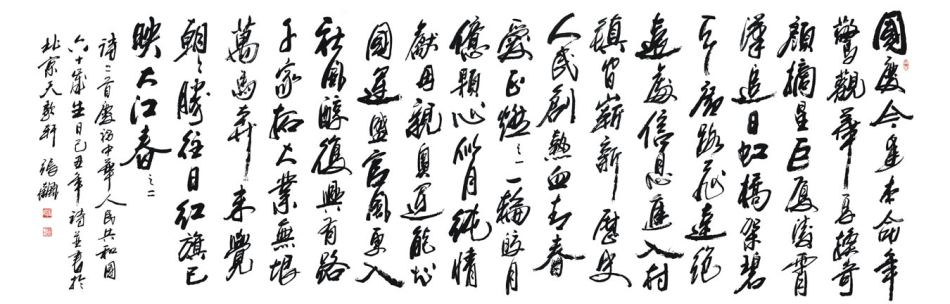 國慶今逢本命年
驚觀華夏換奇
顏摘星巨廈凌霄
漢追日虹橋架碧
天廣路飛速絕
遠處信息匯入村
鎮皆嶄新歷史
人民創熱血青春
愛正燃之一一輪皎月
億顆心似月純情
獻母親奧運
國運盛官風更入
社風醇復興有路
千家拓大業無垠
萬馬奔來覺
朝朝勝往日紅旗已
映大江春之二
詩二首慶祝中華人民共和國
六十歲生日己丑年詩並書於
北京天軒張